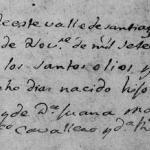 de este valle de santiag
de Nov.e de mil sete
los santos olios y
ho dias nacido hijo
y de D.a Juana Ma
Cavallero y d.a